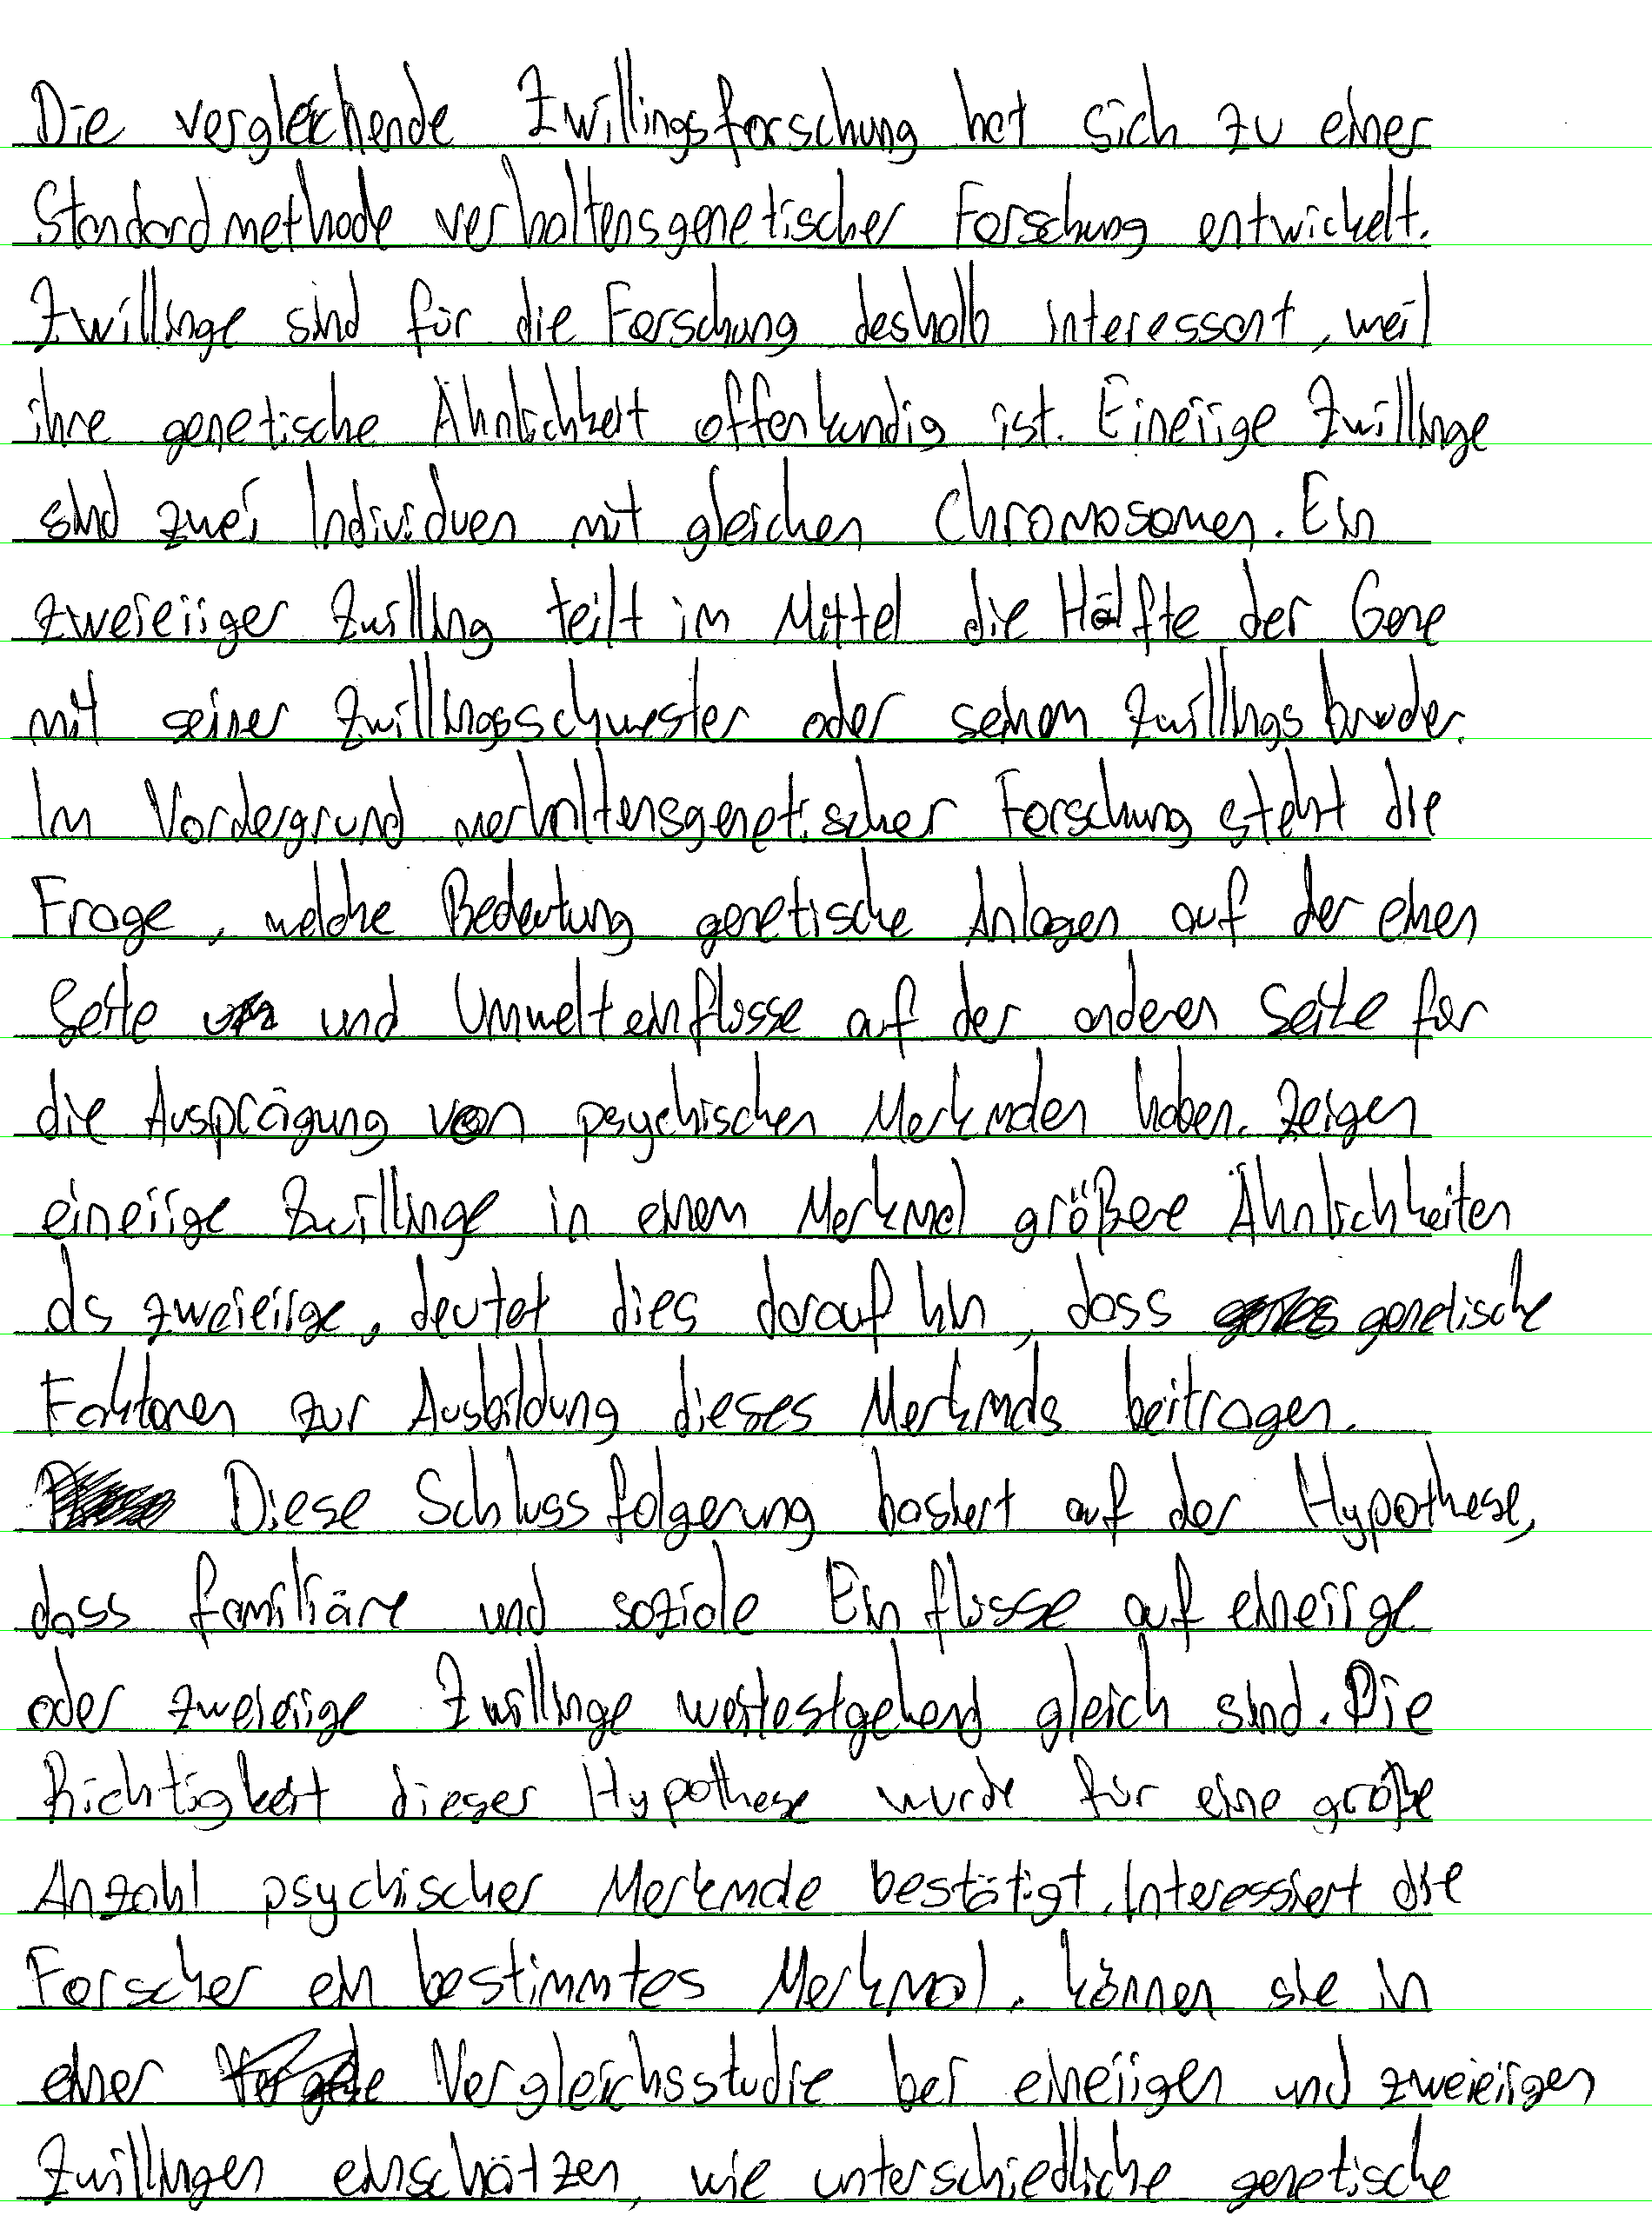 Die vergleichende Zwillingsforschung hat sich zu einer
Standardmethode verhaltensgenetischer Forschung entwickelt.
Zwillinge sind für die Forschung deshalb interessant, weil
ihre genetische Ähnlichkeit offenkundig ist. Eineiige Zwillinge
sind zwei Individuen mit gleichen Chromosomen. Ein
zweieiiger Zwilling teilt im Mittel die Hälfte der Gene
mit seiner Zwillingsschwester oder seinem Zwillingsbruder.
Im Vordergrund verhaltensgenetischer Forschung steht die
Frage, welche Bedeutung genetische Anlagen auf der einen
Seite und Umwelteinflüsse auf der anderen Seite für
die Ausprägung von psychischen Merkmalen haben. Zeigen
eineiige Zwillinge in einem Merkmal größere Ähnlichkeiten
als zweieiige, deutet dies darauf hin, dass genetische
Faktoren zur Ausbildung dieses Merkmals beitragen.
Diese Schlussfolgerung basiert auf der Hypothese,
dass familiäre und soziale Einflüsse auf eineiige
oder zweieiige Zwillinge weitestgehend gleich sind. Die
Richtigkeit dieser Hypothese wurde für eine große
Anzahl psychischer Merkmale bestätigt. Interessiert die
Forscher ein bestimmtes Merkmal, können sie in
einer Vergleichsstudie bei eineiigen und zweieiigen
Zwillingen einschätzen, wie unterschiedliche genetische